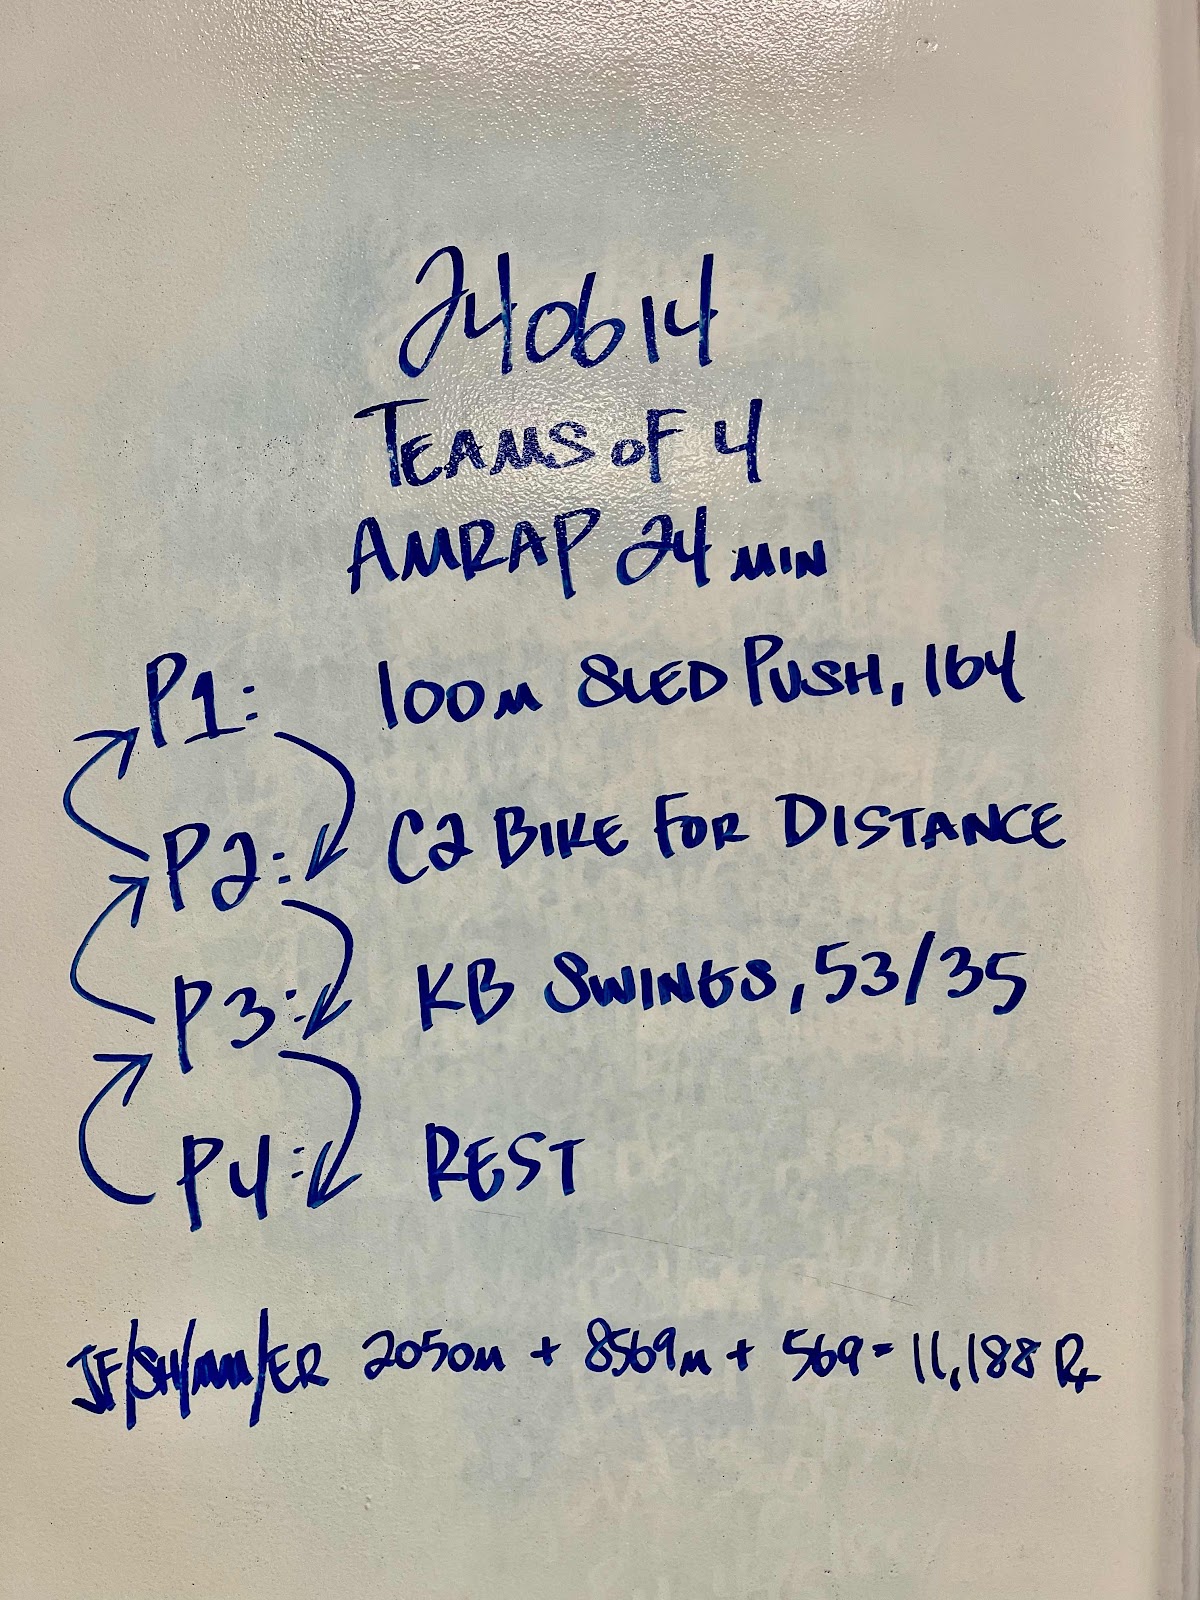 240614
TEAMS OF 4
AMRAP 24 MIN
P1: 100M SLED PUSH, 164
P2: C2 BIKE FOR DISTANCE
P3: KB SWINGS, 53/35
P4: REST
JF/SH/MM/ER 2050M + 8569M + 569 = 11,188 Rx